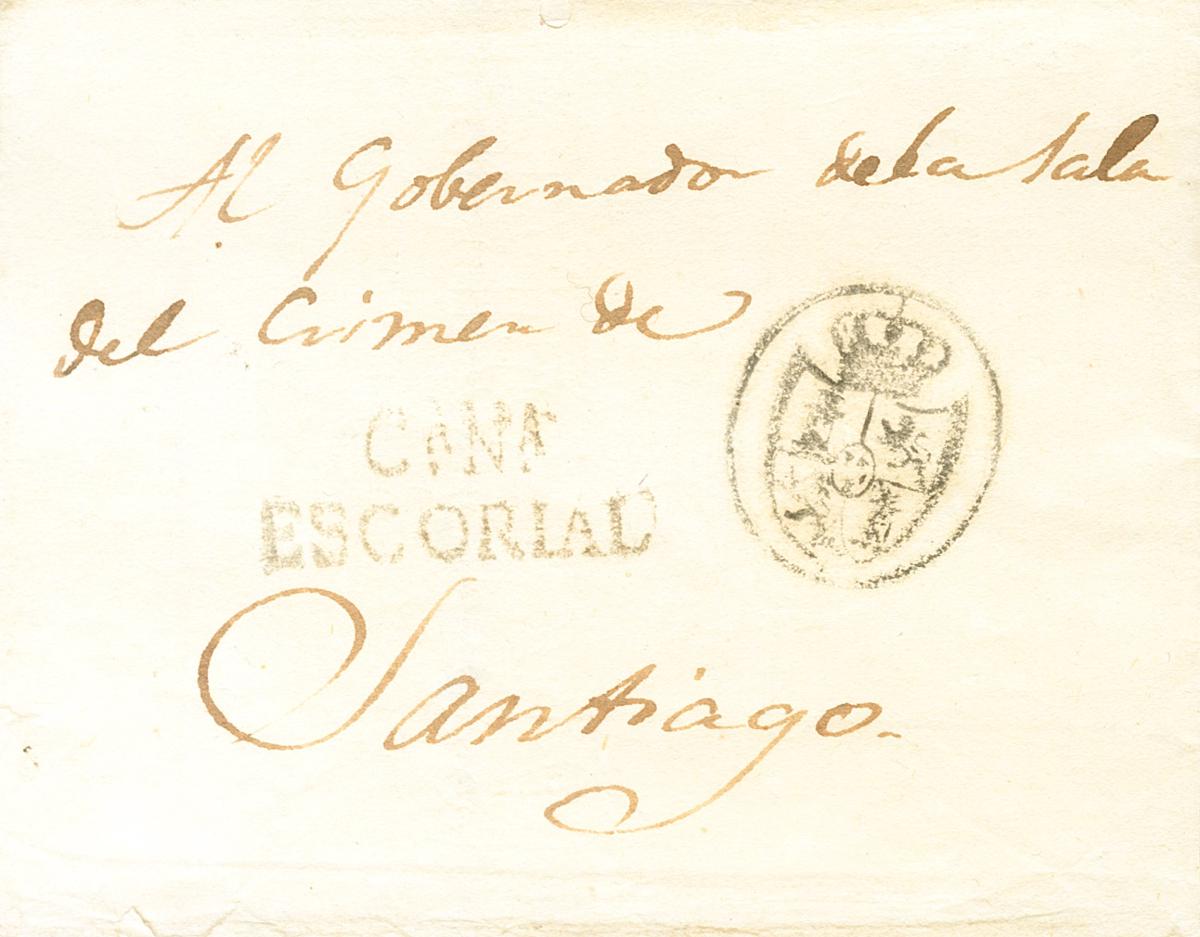 Al Gobernador dela Sala
del Crimen de
CANA
ESCORIAL
Santiago.